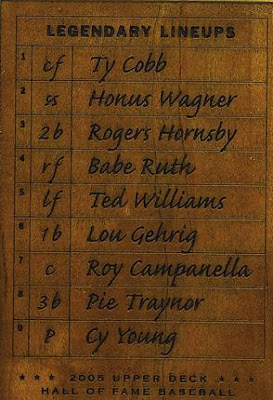 LEGENDARY LINEUPS
1 cf Ty Cobb
2 ss Honus Wagner
3 2b Rogers Hornsby
4 rf Babe Ruth
5 lf Ted Williams
6 1b Lou Gehrig
7 c Roy Campanella
8 3b Pie Traynor
9 P Cy Young
★ ★ ★ 2005 UPPER DECK ★ ★ ★
HALL OF FAME BASEBALL